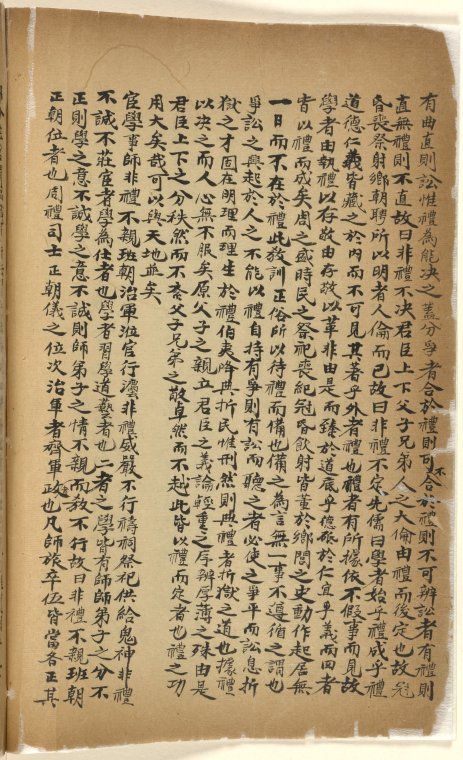 有曲直則訟惟禮為能決之蓋分爭者合於禮則可不合於禮則不可辨訟者有禮則
直無禮則不直故曰非禮不決君臣上下父子兄弟人之大倫由禮而後定也故冠
昏喪祭射鄉朝聘所以明者人倫而已故曰非禮不定先儒曰學者始乎禮成乎禮
道德仁義皆藏之於內而不可見其著乎外者禮也禮者有所據依不假事而見故
學者由執禮以存敬由存敬以革非由是而臻於道底乎德依於仁宜乎義而四者
皆以禮而成矣周之盛時民之祭祀喪紀冠昏飲射皆董於鄉閭之史動作起居無
一日而不在於禮此教訓正俗所以待禮而備也備之為言無一事不遵循之謂也
爭訟之興起於人之不能以禮自持有爭則有訟而聽之者必使之爭平而訟息折
獄之才固在明理而理生於禮伯夷降典折民惟刑然則典禮者折獄之道也據禮
以決之而人心無不服矣原父子之親立君臣之義論輕重之序辨厚薄之殊由是
君臣上下之分秩然而不紊父子兄弟之敬卓然而不起此皆以禮而定者也禮之功
用大矣哉可以與天地並矣
宦學事師非禮不親班朝治軍涖官行灋非禮威嚴不行禱祠祭祀供給鬼神非禮
不誠不莊宦者學為仕者也學者習學道藝者也二者之學皆有師師弟子之分不
正則學之意不誠學之意不誠則師弟子之情不親而教不行故曰非禮不親班朝
正朝位者也周禮司士正朝儀之位次治軍者齊軍政也凡師旅卒伍皆當各正其